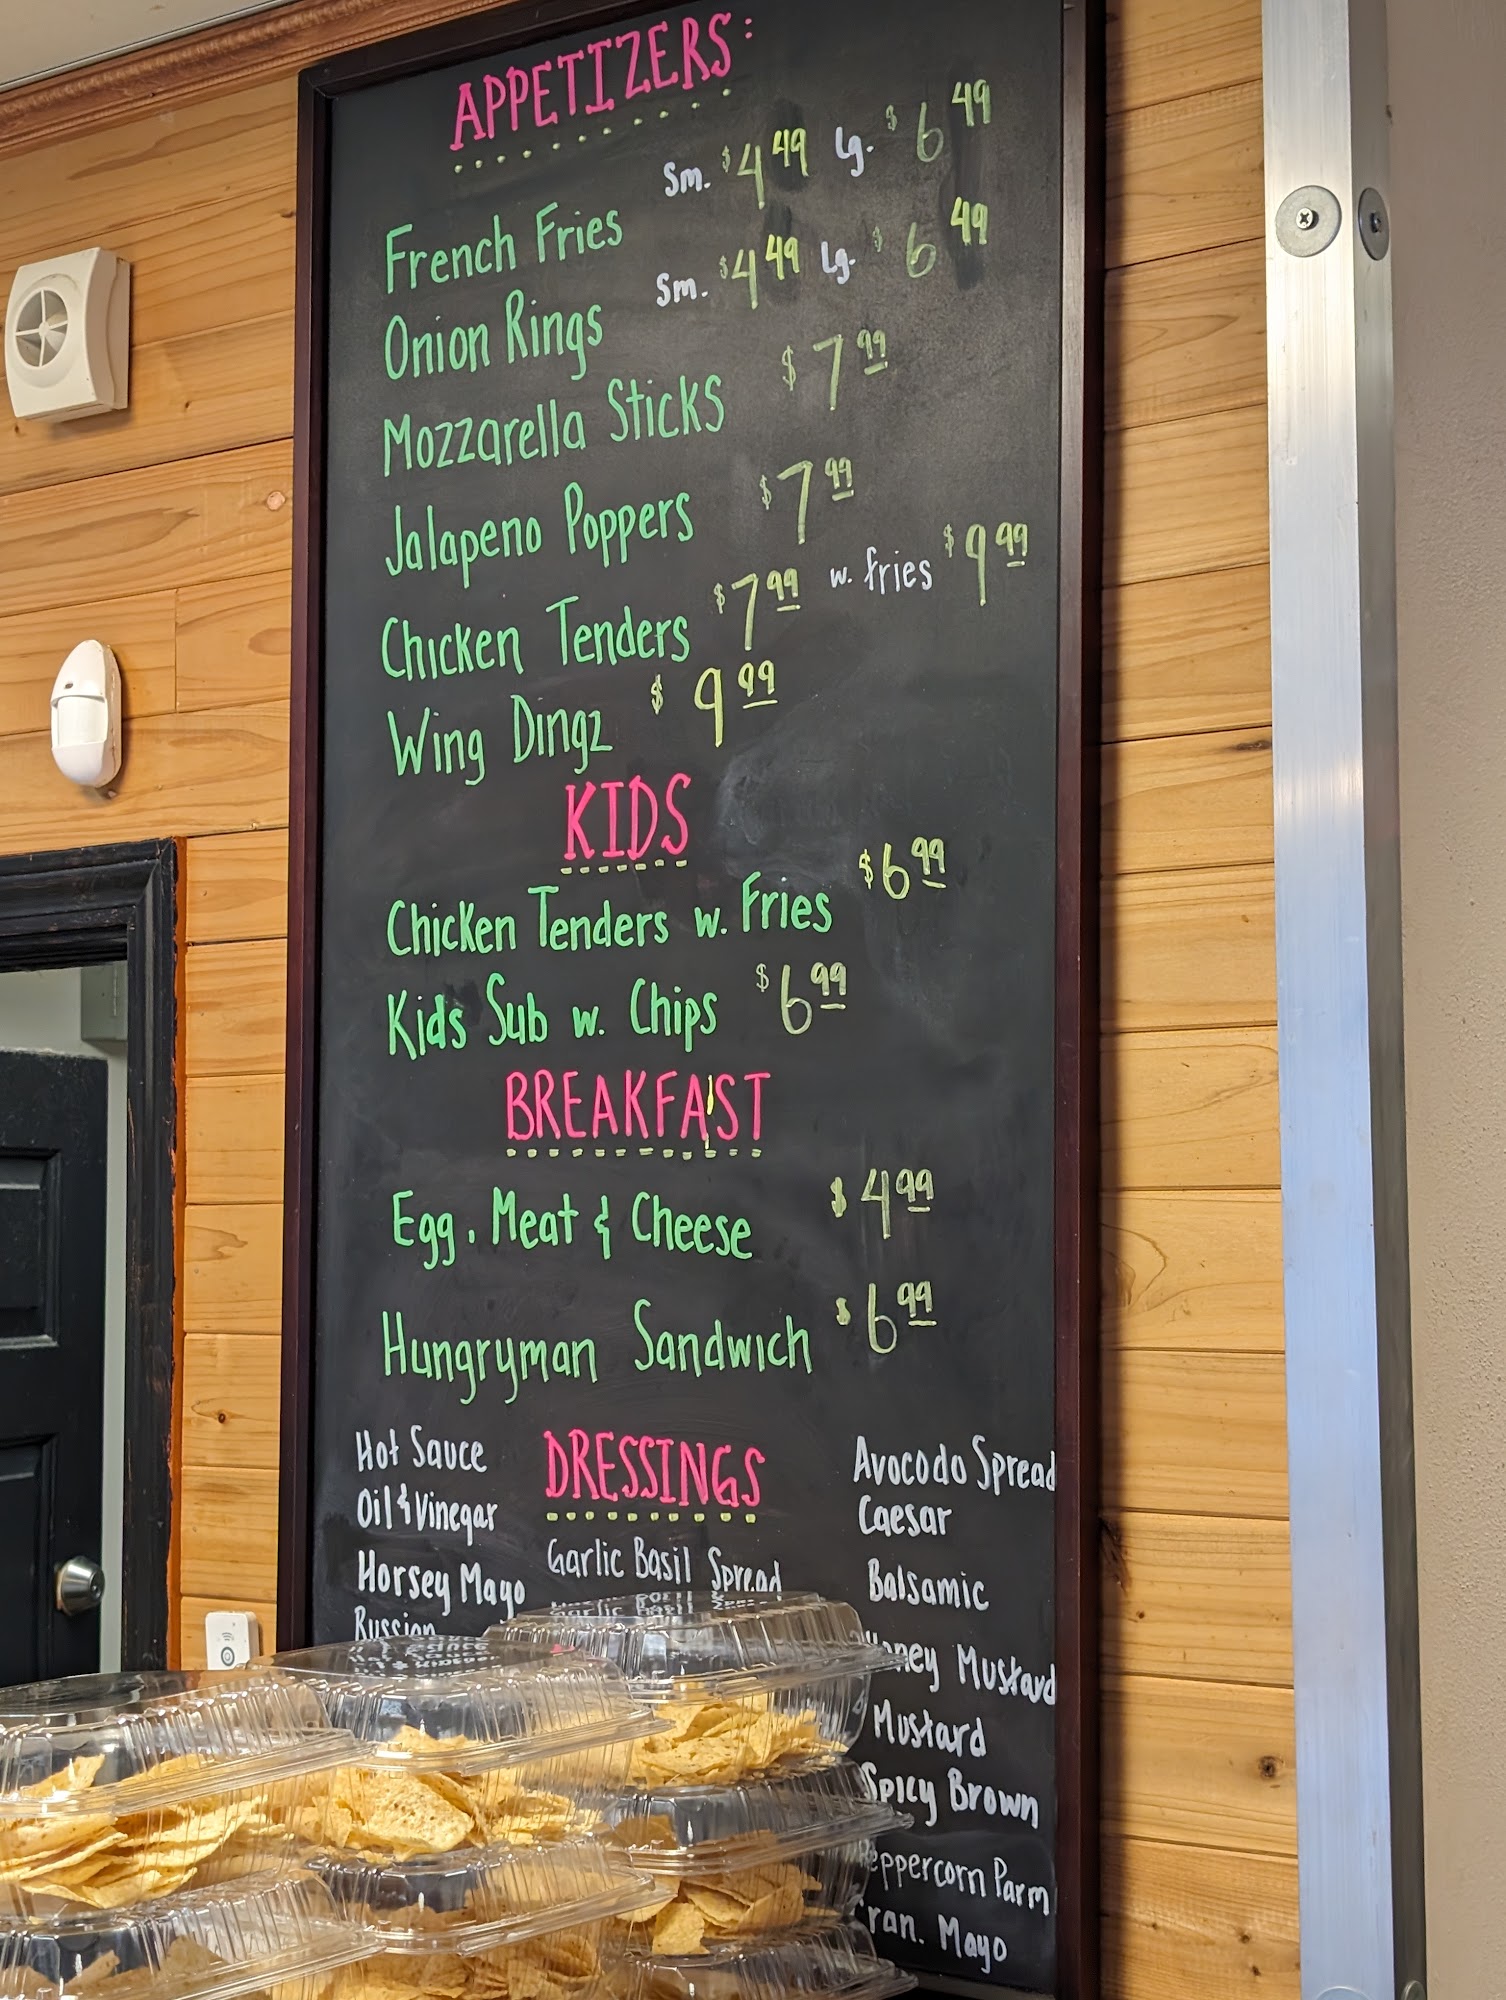 APPETIZERS:
French Fries Sm. $4.49 Lg. $6.49
Onion Rings Sm. $4.49 Lg. $6.49
Mozzarella Sticks $7.99
Jalapeno Poppers $7.99
Chicken Tenders $7.99 w. fries $9.99
Wing Dingz $9.99
KIDS
Chicken Tenders w. Fries $6.99
Kids Sub w. Chips $6.99
BREAKFAST
Egg. Meat & Cheese $4.99
Hungryman Sandwich $6.99
DRESSINGS
Hot Sauce
Oil & Vinegar
Horsey Mayo
Russian
Garlic Basil Spread
Avocodo Spread
Caesar
Balsamic
Honey Mustard
Mustard
Spicy Brown
Peppercorn Parm
Mayo